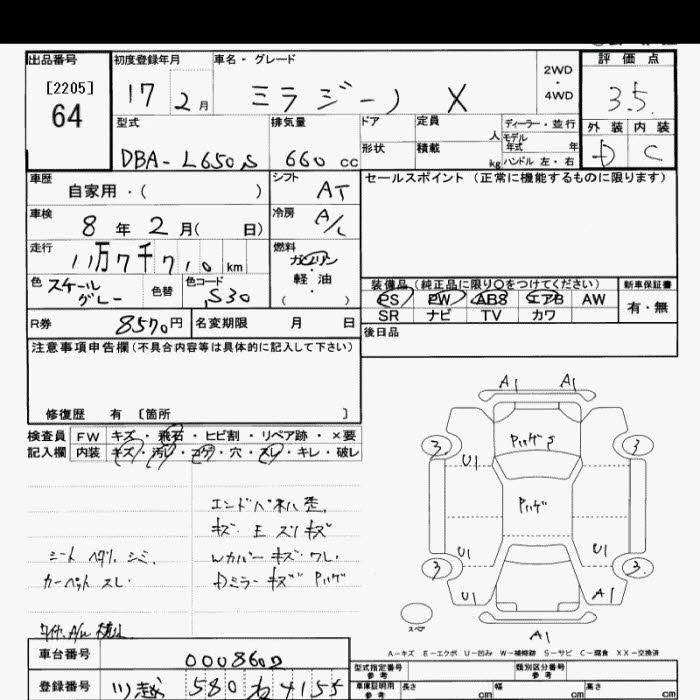 出品番号
[2205]
64
初度登録年月
17 2月
車名・グレード
ミラジーノ X
2WD
・
4WD
評価点
3.5
外装 内装
D C
型式
DBA-L650S
排気量
660 cc
ドア
形状
定員 人
積載 kg
ディーラー・並行
モデル年式 年
ハンドル 左・右
車歴
自家用・( )
シフト
AT
車検
8年 2月( 日)
冷房
A/C
走行
11万7千710 km
燃料
ガソリン
・
軽油
( )
色
スケール
グレー
色替
色コード
S30
セールスポイント(正常に機能するものに限ります)
装備品(純正品に限り〇をつけてください)
PS PW ABS エアB AW
SR ナビ TV カワ
新車保証書
有・無
R券 8570円
名変期限 月 日
後日品
注意事項申告欄(不具合内容等は具体的に記入して下さい)
修復歴 有 〔箇所 〕
検査員
記入欄
FW キズ・飛石・ヒビ割・リペア跡・×要
内装 キズ・汚レ・コゲ・穴・スレ・キレ・破レ
シート ヘタリ、シミ、
カーペット スレ、
エンドパネル歪、
キズ、E スリキズ
Wカバー キズ ワレ、
Dミラー キズ Pハゲ
A1 A1
3 3
PハゲS
U1
Pハゲ
U1 U1
3 3
U1 A1
スペア
A1
A-キズ E-エクボ U-凹み W-補修跡 S-サビ C-腐食 XX-交換済
車台番号
0008602
登録番号
580 ね 4155
型式指定番号
参考
類別区分番号
参考
車庫証明用
参考
長さ cm
幅 cm
高さ cm